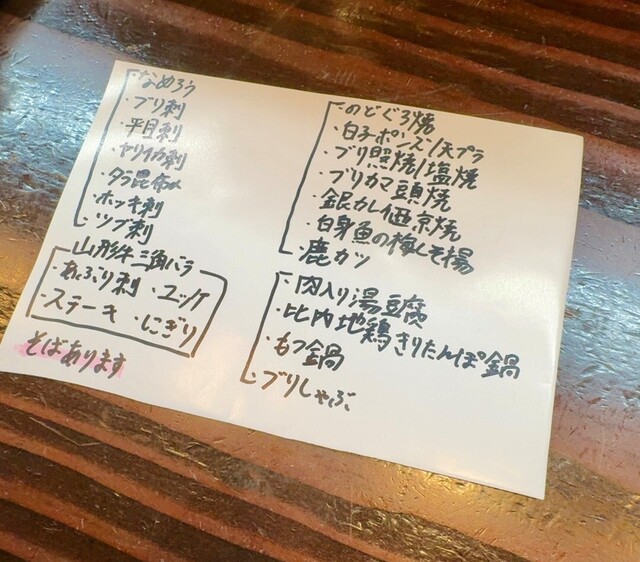 ・なめろう
・ブリ刺
・平目刺
・ヤリイカ刺
・タラ昆布〆
・ホッキ刺
・ツブ刺
山形牛三角バラ
・あぶり刺 ・ユッケ
・ステーキ ・にぎり
そばあります
・のどぐろ焼
・白子ポンズ/天プラ
・ブリ照焼/塩焼
・ブリカマ頭焼
・銀カレイ西京焼
・白身魚の梅しそ揚
・鹿カツ
・肉入り湯豆腐
・比内地鶏きりたんぽ鍋
・もつ鍋
・ブリしゃぶ